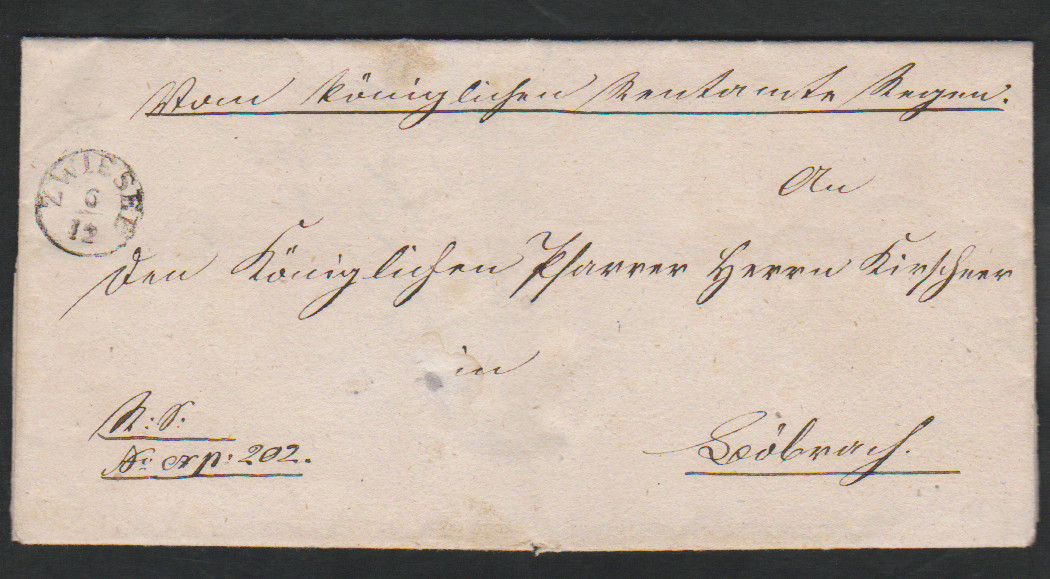 Vom Königlichen Rentamte Regen.
ZWIESEL
6
12
An
den Königlichen Pfarrer Herrn Kirschner
in
R: S:
No exp: 202.
Böbrach.